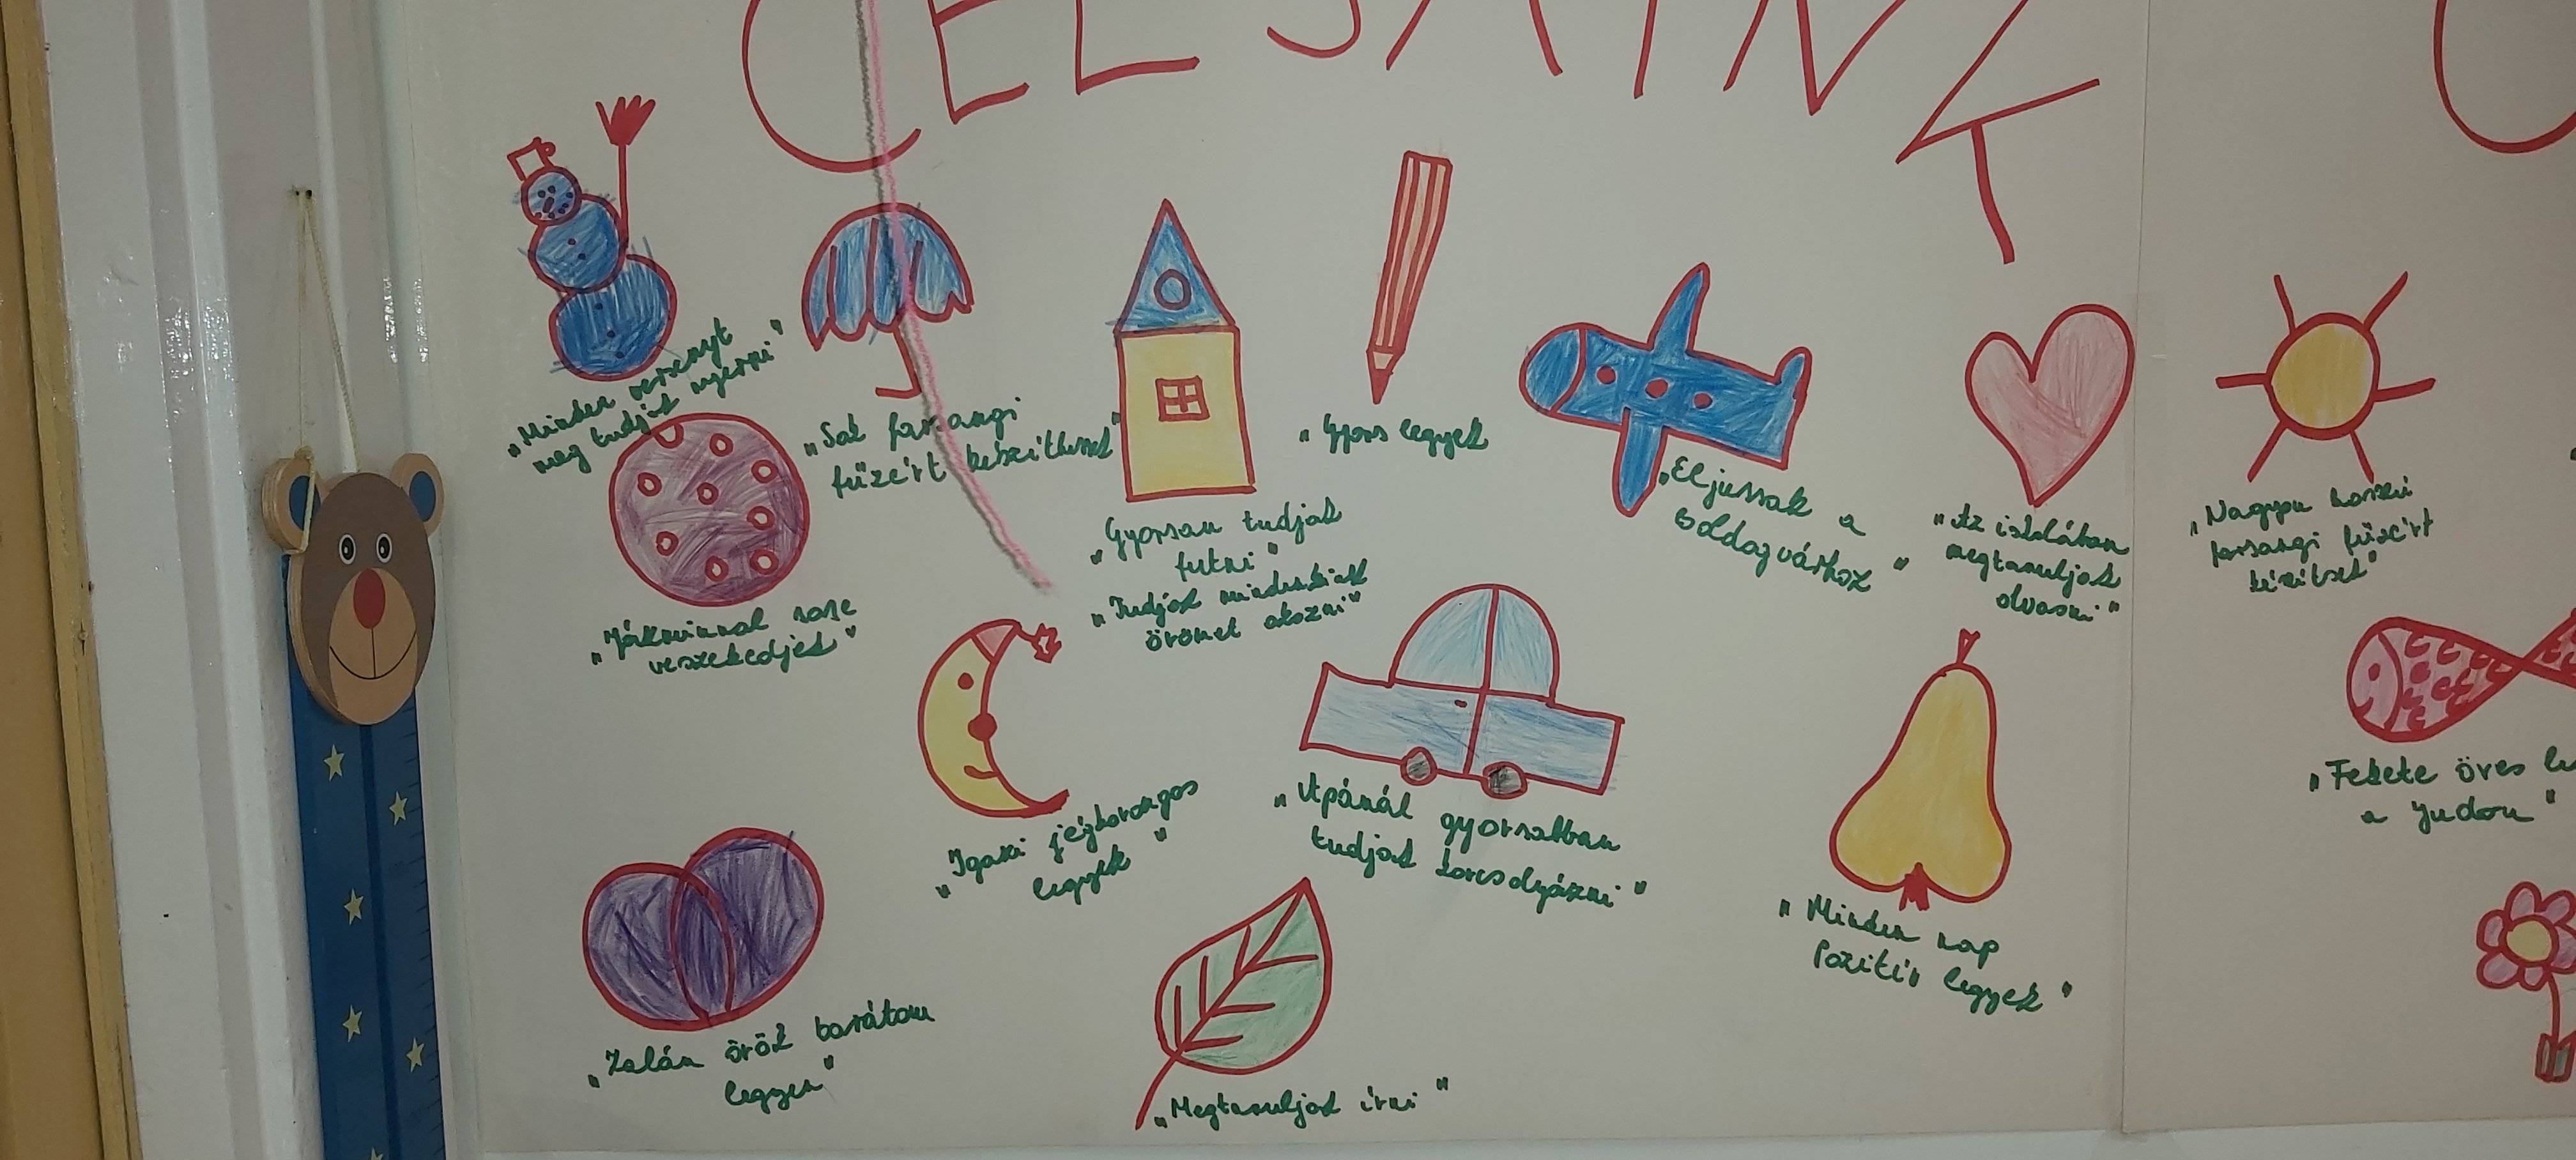 CÉLJAINK
„Minden versenyt
meg tudjak nyerni”
„Sok farsangi
füzért készíthessek”
„Gyorsan tudjak
futni”
„Tudjak mindenkinek
örömet okozni”
„Gyors legyek
„Eljussak a
Boldogvárhoz”
„Az iskolában
megtanuljak
olvasni”
„Nagyon hosszú
farsangi füzért
készítsek”
sose
veszekedjek”
„Igazi jégkorongos
legyek”
„Apánál gyorsabban
tudjak korcsolyázni”
„Minden nap
Pozitív legyek”
„Fekete öves
a Judon”
„Zalán örök barátom
legyen”
„Megtanuljak írni”